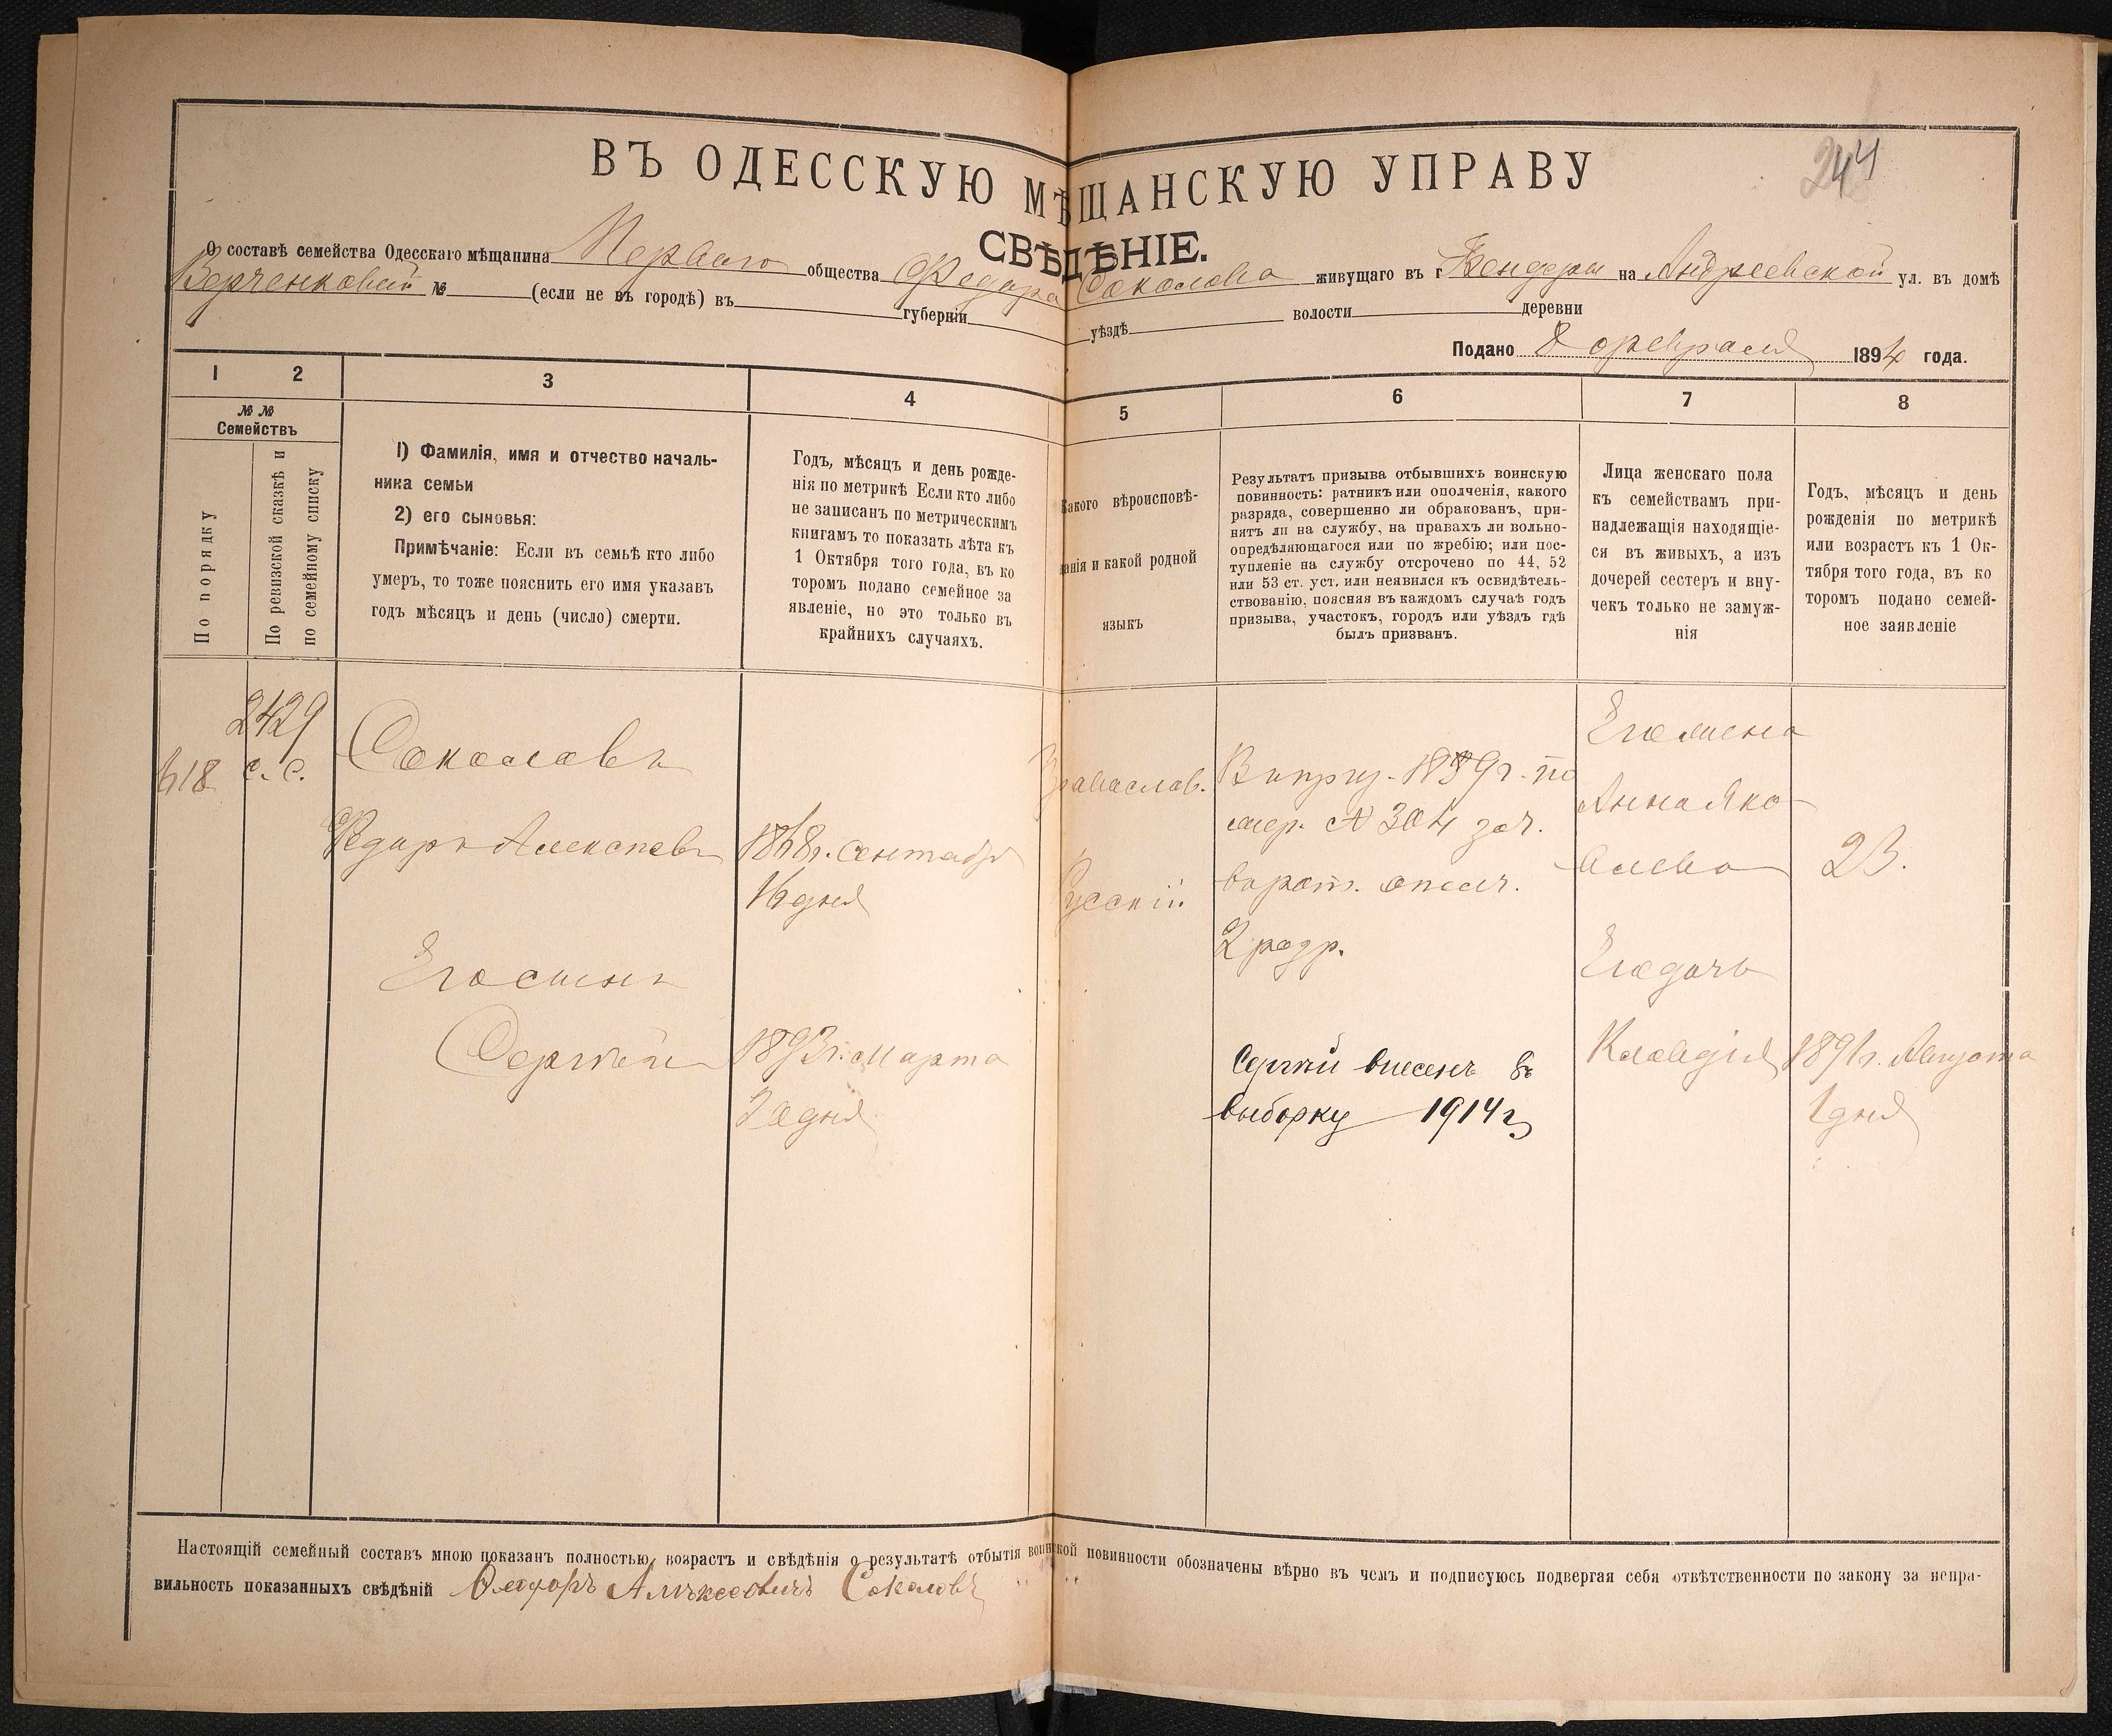 244
ВЪ ОДЕССКУЮ МѢЩАНСКУЮ УПРАВУ
СВѢДѢНІЕ.
О составѣ семейства Одесскаго мѣщанина Перваго общества Федора Соколова живущаго въ г Бендеры на Андреевской ул. въ домѣ
Верченковой № (если не въ городѣ) въ губерніи уѣздѣ волости деревни
Подано 8 февраля 1894 года.
1 2 3 4 5 6 7 8
№ № Семействъ
По порядку
По ревизской сказкѣ и
по семейному списку
1) Фамилія, имя и отчество началь-
ника семьи
2) его сыновья:
Примѣчаніе: Если въ семьѣ кто либо
умеръ, то тоже пояснить его имя указавъ
годъ мѣсяцъ и день (число) смерти.
Годъ, мѣсяцъ и день рожде-
нія по метрикѣ Если кто либо
не записанъ по метрическимъ
книгамъ то показать лѣта къ
1 Октября того года, въ ко
торомъ подано семейное за
явленіе, но это только въ
крайнихъ случаяхъ.
Какого вѣроисповѣ-
данія и какой родной
языкъ
Результатъ призыва отбывшихъ воинскую
повинность: ратникъ или ополченія, какого
разряда, совершенно ли обракованъ, при-
нятъ ли на службу, на правахъ ли вольно-
опредѣляющагося или по жребію; или пос-
тупленіе на службу отсрочено по 44, 52
или 53 ст. уст. или неявился къ освидѣтель-
ствованію, поясняя въ каждомъ случаѣ годъ
призыва, участокъ, городъ или уѣздъ гдѣ
былъ призванъ.
Лица женскаго пола
къ семействамъ при-
надлежащія находящіе-
ся въ живыхъ, а изъ
дочерей сестеръ и вну-
чекъ только не замуж-
нія
Годъ, мѣсяцъ и день
рожденія по метрикѣ
или возрастъ къ 1 Ок-
тября того года, въ ко
торомъ подано семей-
ное заявленіе
618
2429
с. с.
Соколовъ
Федоръ Алексѣевъ
Его сынъ
Сергѣй
1868г. сентября
16 дня
1893г. Марта
20 дня
Православ.
Русскій
В призу. 1889г. по
жер. № 304 зач.
в рат. ополч.
2 разр.
Сергѣй внесенъ въ
выборку 1914г
Его жена
Анна Яко-
влева
Его дочь
Клавдія
23.
1891г. Августа
1 дня
Настоящій семейный составъ мною показанъ полностью, возрастъ и свѣдѣнія о результатѣ отбытія воинской повинности обозначены вѣрно въ чемъ и подписуюсь подвергая себя отвѣтственности по закону за непра-
вильность показанныхъ свѣдѣній Федоръ Алѣксеевичъ Соколовъ